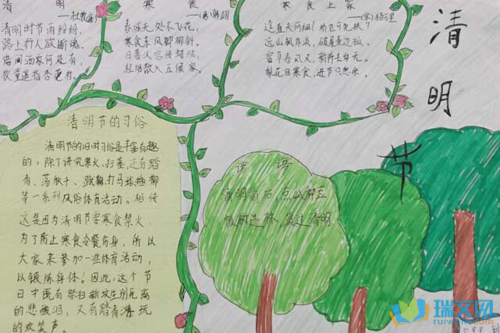 清明
清明时节雨纷纷
路上行人欲断魂
借问酒家何处有
牧童遥指杏花村
寒食
春城无处不飞花
寒食东风御柳斜
日暮汉宫传蜡烛
轻烟散入五侯家
寒食上冢
梨花日寒食
清明节
清明节的习俗
清明节的旧时习俗是丰富有趣
的，除了讲究禁火、扫墓，还有踏
青、荡秋千、蹴鞠、打马球、插柳
等一系列风俗体育活动。相传
这是因为清明节要寒食禁火，
为了防止寒食冷餐伤身，所以
大家来参加一些体育活动，
以锻炼身体。因此，这个节
日中既有祭扫新坟生别死离
的悲酸泪，又有踏青游玩
的欢笑声。
谚语
清明前后，点瓜种豆
植树造林，莫过清明
瑞文网